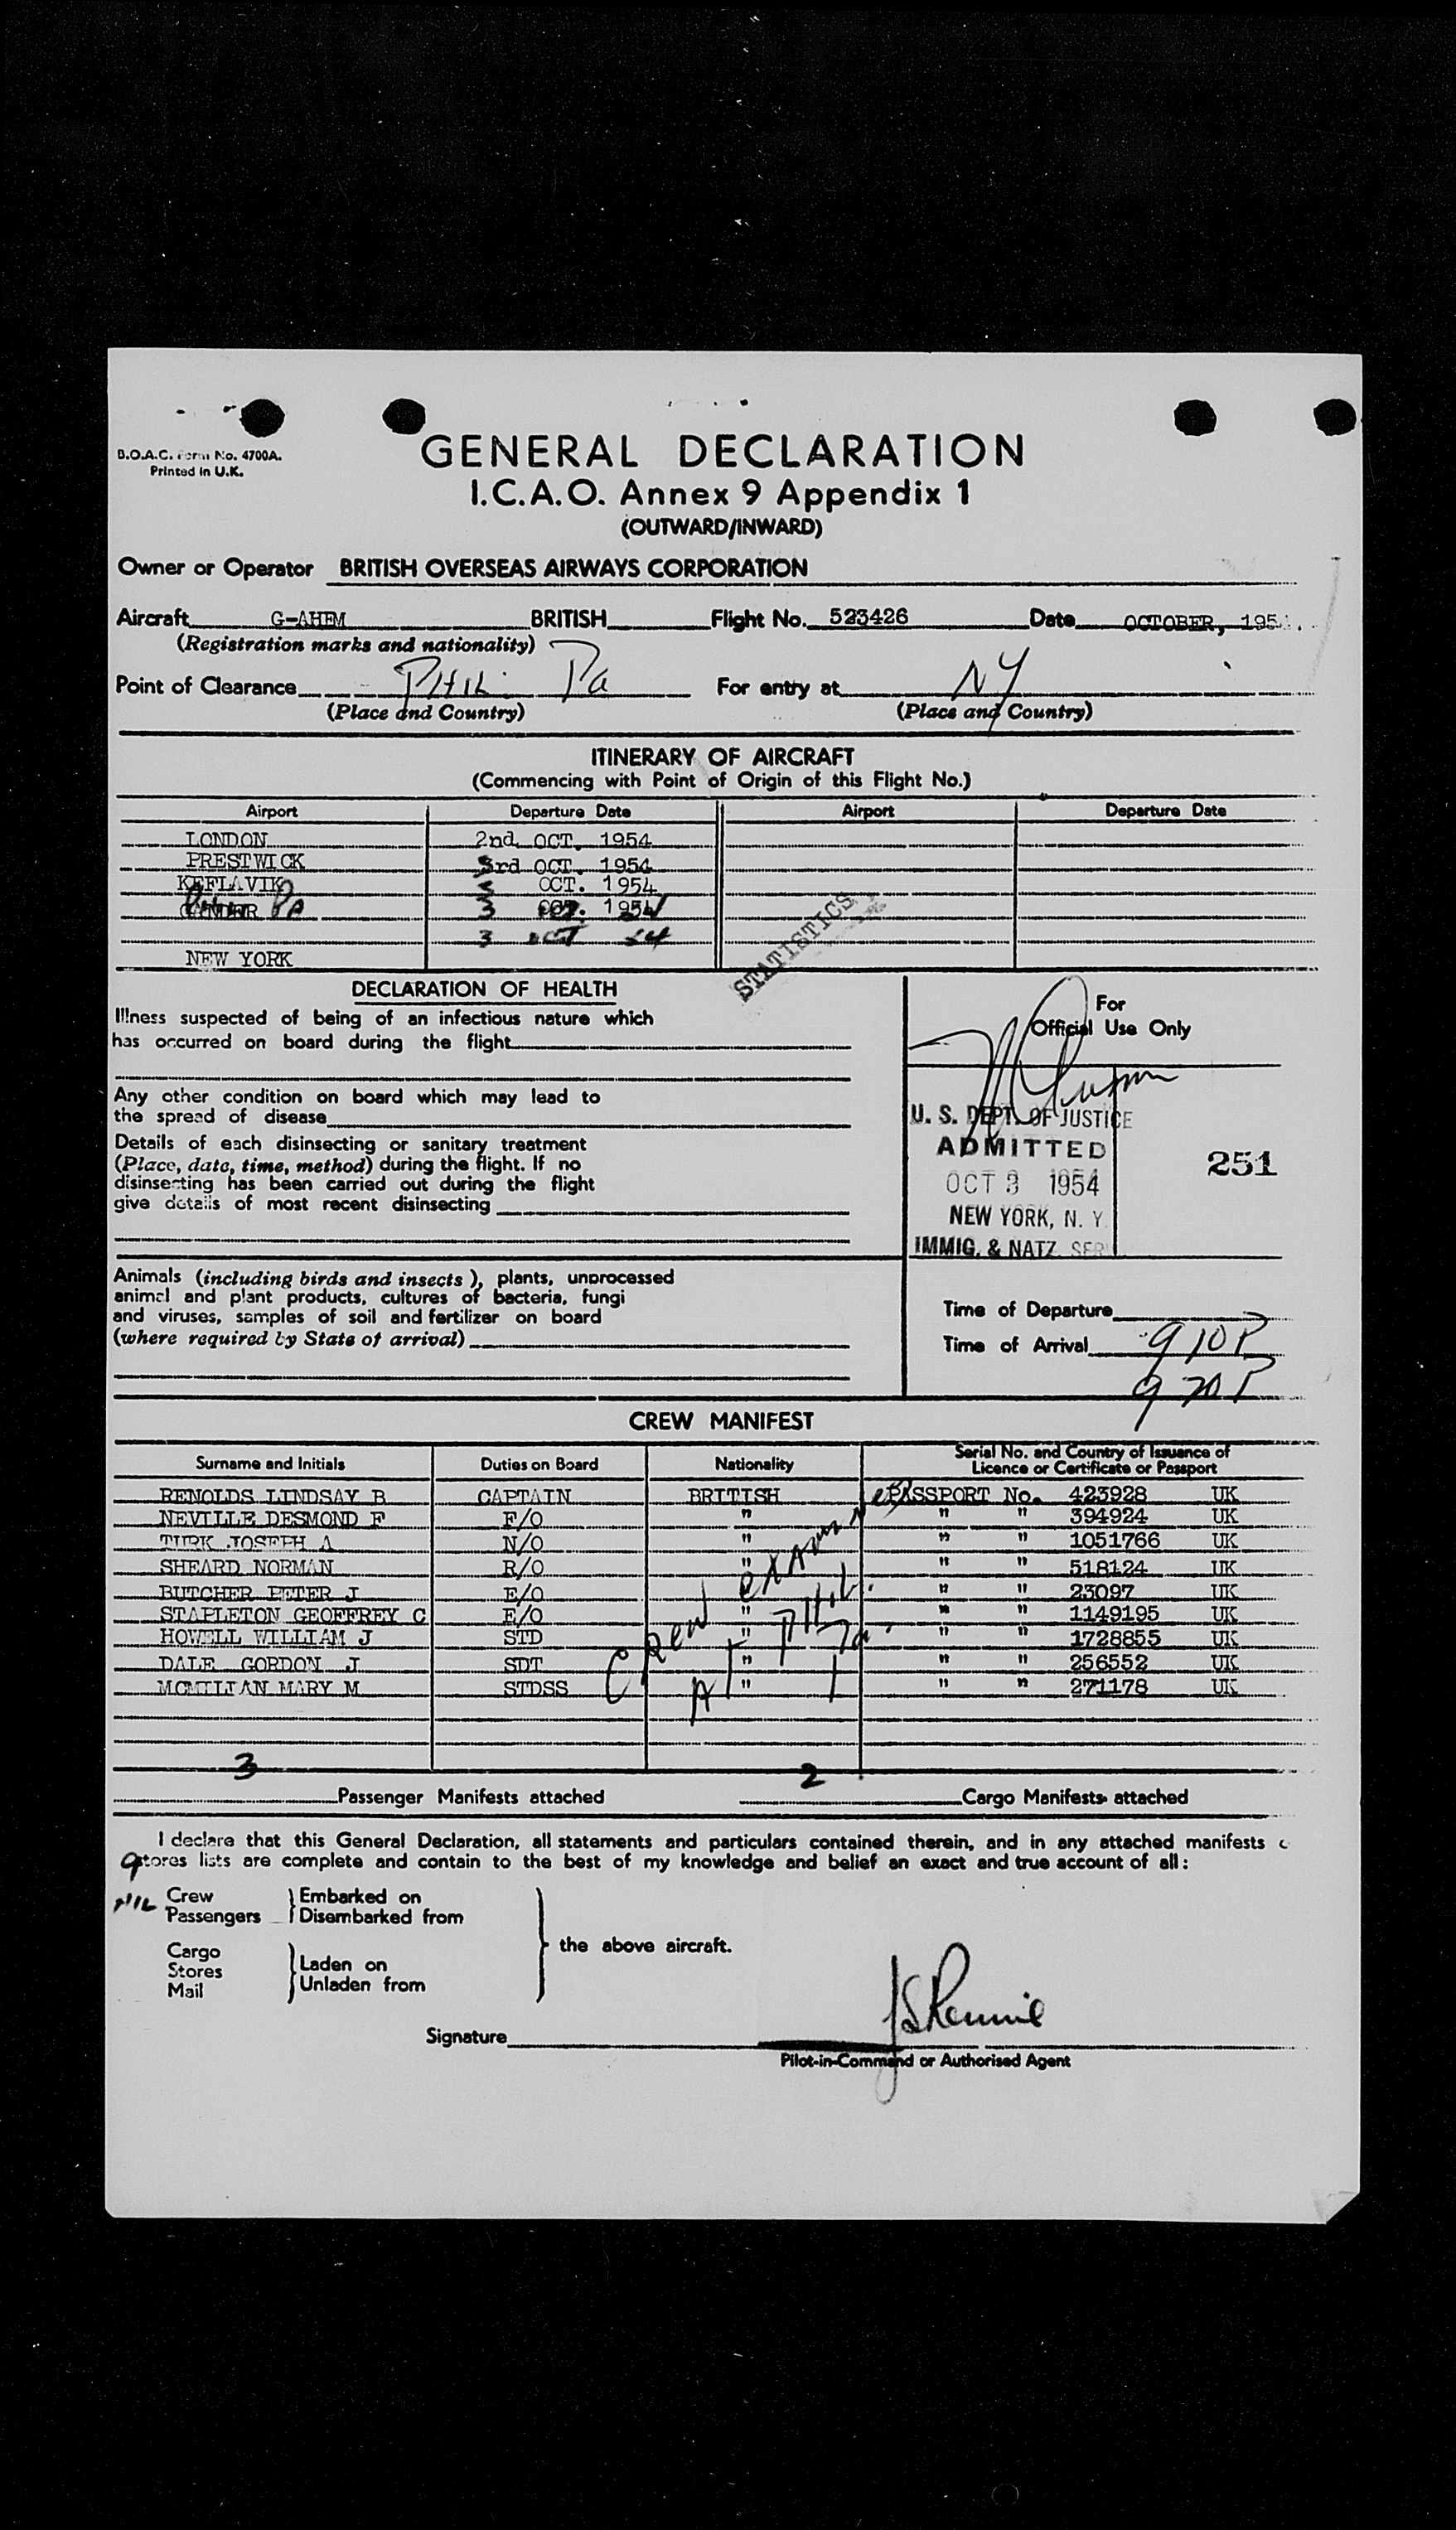 B.O.A.C. Form No. 4700A.
Printed in U.K.
GENERAL DECLARATION
I.C.A.O. Annex 9 Appendix 1
(OUTWARD/INWARD)
Owner or Operator BRITISH OVERSEAS AIRWAYS CORPORATION
Aircraft G-AHEM BRITISH Flight No. 523426 Date OCTOBER, 195
(Registration marks and nationality)
Point of Clearance Phil Pa For entry at NY
(Place and Country) (Place and Country)
ITINERARY OF AIRCRAFT
(Commencing with Point of Origin of this Flight No.)
Airport Departure Date Airport Departure Date
LONDON 2nd OCT. 1954
PRESTWICK 3rd OCT. 1954
KEFLAVIK 3 OCT. 1954
GANDER Pa 3 OCT. 1954
3 OCT 54
NEW YORK
STATISTICS
DECLARATION OF HEALTH
Illness suspected of being of an infectious nature which
has occurred on board during the flight
Any other condition on board which may lead to
the spread of disease
Details of each disinsecting or sanitary treatment
(Place, date, time, method) during the flight. If no
disinsecting has been carried out during the flight
give details of most recent disinsecting
Animals (including birds and insects), plants, unprocessed
animal and plant products, cultures of bacteria, fungi
and viruses, samples of soil and fertilizer on board
(where required by State of arrival)
For
Official Use Only
U. S. DEPT. OF JUSTICE
ADMITTED
OCT 3 1954
NEW YORK, N. Y.
IMMIG. & NATZ. SER
251
Time of Departure
Time of Arrival 910P
920P
CREW MANIFEST
Surname and Initials Duties on Board Nationality Serial No. and Country of Issuance of
Licence or Certificate or Passport
RENOLDS LINDSAY B CAPTAIN BRITISH PASSPORT No. 423928 UK
NEVILLE DESMOND F F/O " " " 394924 UK
TURK JOSEPH A N/O " " " 1051766 UK
SHEARD NORMAN R/O " " " 518124 UK
BUTCHER PETER J E/O " " " 23097 UK
STAPLETON GEOFFREY C E/O " " " 1149195 UK
HOWELL WILLIAM J STD " " " 1728855 UK
DALE GORDON J SDT " " " 256552 UK
MCMILLAN MARY M STDSS " " " 271178 UK
Crew examined
At Phil. Pa.
3 Passenger Manifests attached 2 Cargo Manifests attached
I declare that this General Declaration, all statements and particulars contained therein, and in any attached manifests
stores lists are complete and contain to the best of my knowledge and belief an exact and true account of all:
9 Crew Embarked on
NIL Passengers Disembarked from
the above aircraft.
Cargo
Stores Laden on
Mail Unladen from
Signature JSRennie
Pilot-in-Command or Authorised Agent